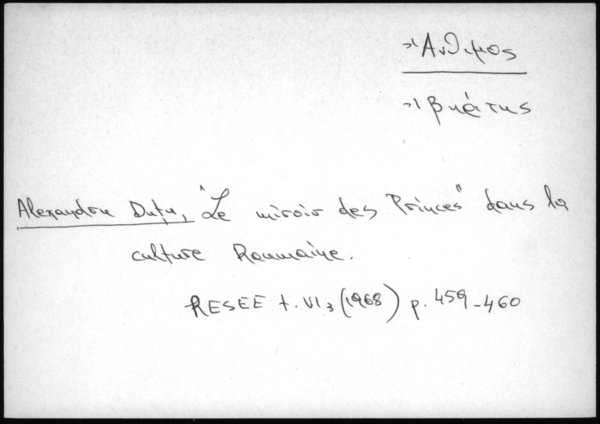 Ἄνθιμος
Ἰβηρίτης
Alexandru Duţu, "Le miroir des Princes" dans la
culture Roumaine.
RESEE t. VI₃ (1968) p. 459-460